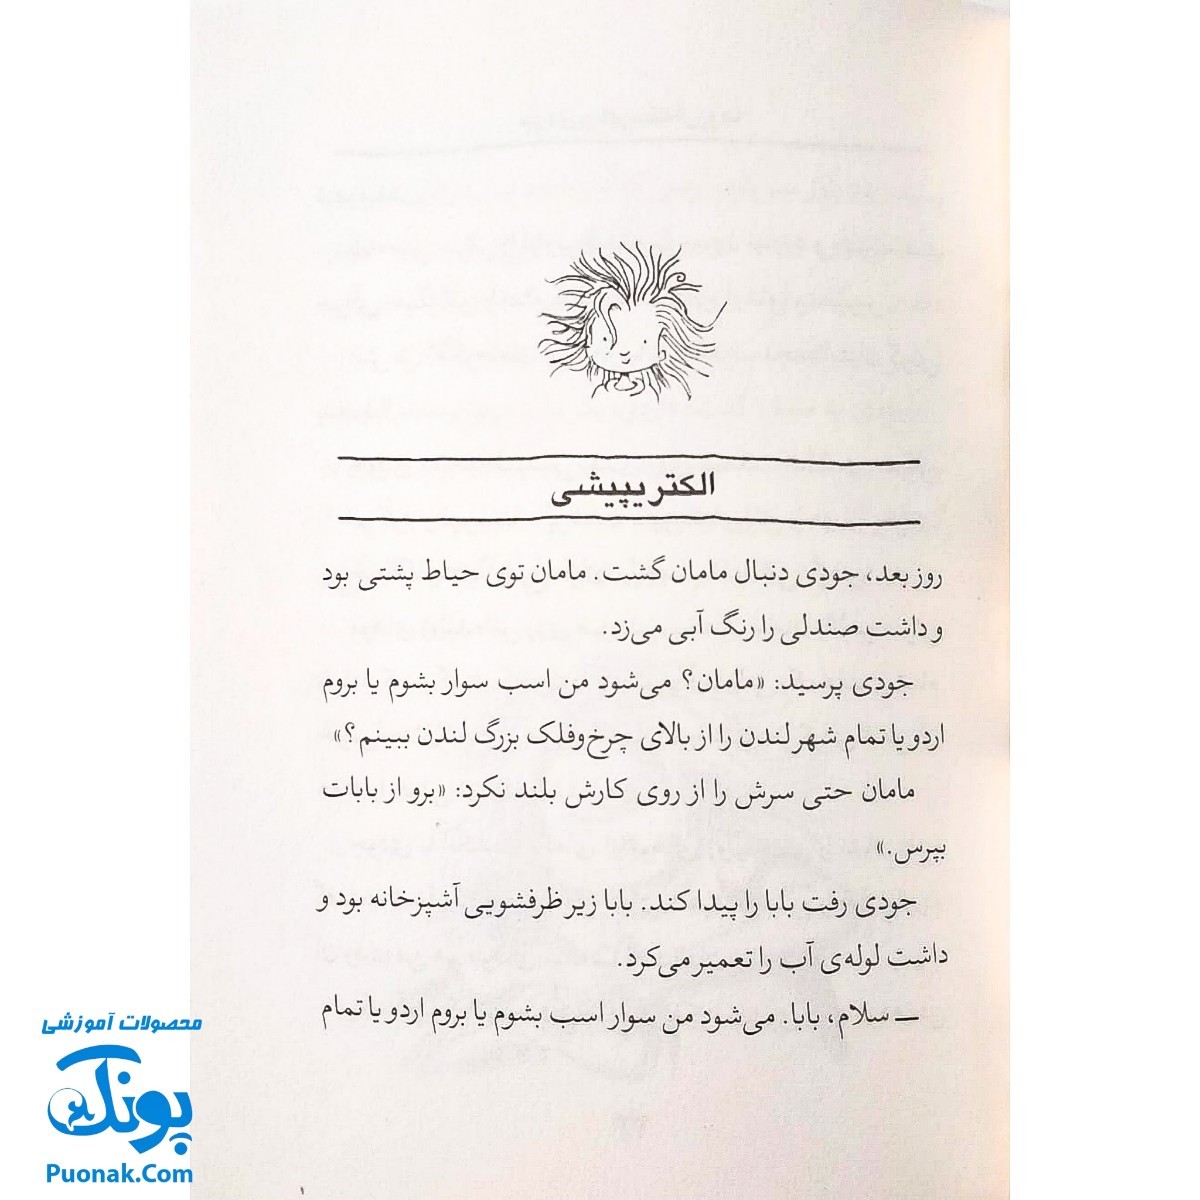 الکتریپیشی
روز بعد، جودی دنبال مامان گشت. مامان توی حیاط پشتی بود
و داشت صندلی را رنگ آبی می‌زد.
جودی پرسید: «مامان؟ می‌شود من اسب سوار بشوم یا بروم
اردو یا تمام شهر لندن را از بالای چرخ‌وفلک بزرگ لندن ببینم؟»
مامان حتی سرش را از روی کارش بلند نکرد: «برو از بابات
بپرس.»
جودی رفت بابا را پیدا کند. بابا زیر ظرفشویی آشپزخانه بود و
داشت لوله‌ی آب را تعمیر می‌کرد.
ــ سلام، بابا. می‌شود من سوار اسب بشوم یا بروم اردو یا تمام
محصولات آموزشی
پونک
Puonak.Com